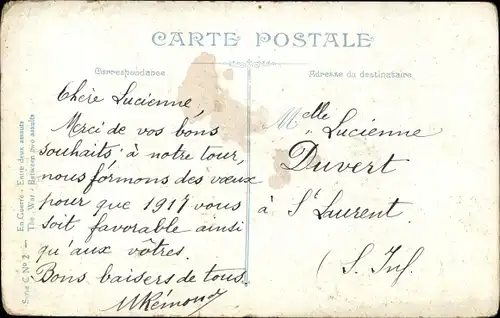 CARTE POSTALE
Correspondance
Adresse du destinataire
Chère Lucienne,
Merci de vos bons
souhaits à notre tour,
nous formons des vœux
pour que 1917 vous
soit favorable ainsi
qu'aux vôtres.
Bons baisers de tous.
MRémond
Melle Lucienne
Duvert
à St Laurent
(S. Inf.
Série C Nº 2 — En Guerre - Entre deux assauts
The War - Between two assaults